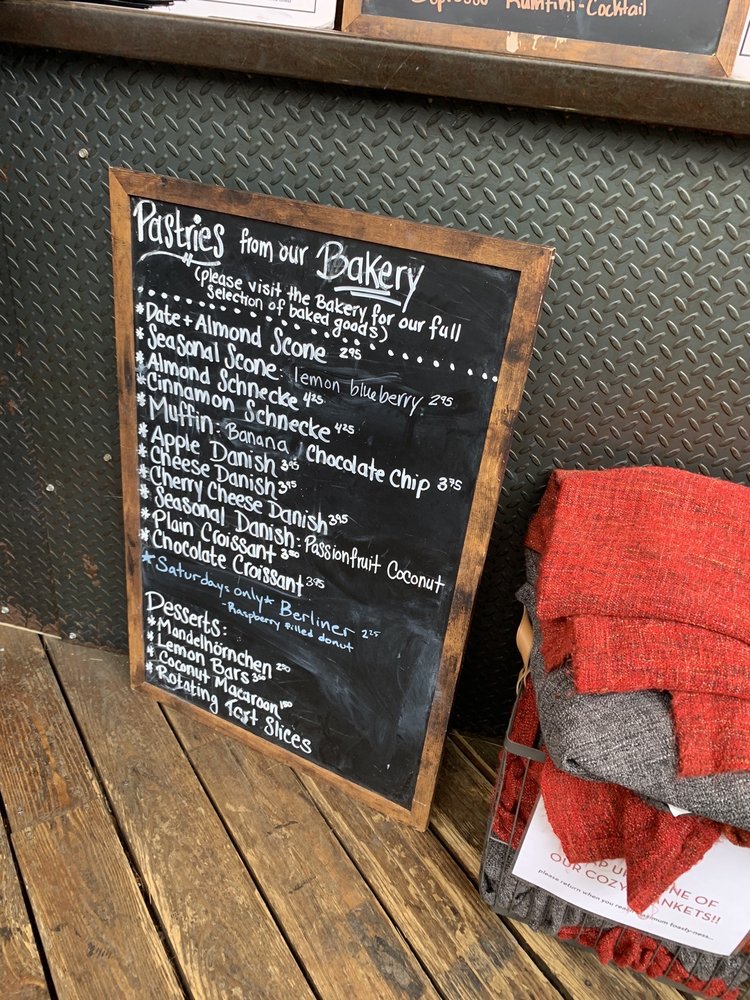 Espresso Rumtini-Cocktail
Pastries from our Bakery
(please visit the Bakery for our full
selection of baked goods)
*Date + Almond Scone 2.95
*Seasonal Scone: lemon blueberry 2.95
*Almond Schnecke 4.25
*Cinnamon Schnecke 4.25
*Muffin: Banana Chocolate Chip 3.75
*Apple Danish 3.95
*Cheese Danish 3.95
*Cherry Cheese Danish 3.95
*Seasonal Danish: Passionfruit Coconut
*Plain Croissant 3.50
*Chocolate Croissant 3.95
*Saturdays only* Berliner 2.25
-Raspberry filled donut
Desserts:
*Mandelhörnchen 2.50
*Lemon Bars 3.50
*Coconut Macaroon 1.50
*Rotating Tart Slices
UP
ONE OF
OUR COZY BLANKETS!!
please return when you reach
maximum toasty-ness...